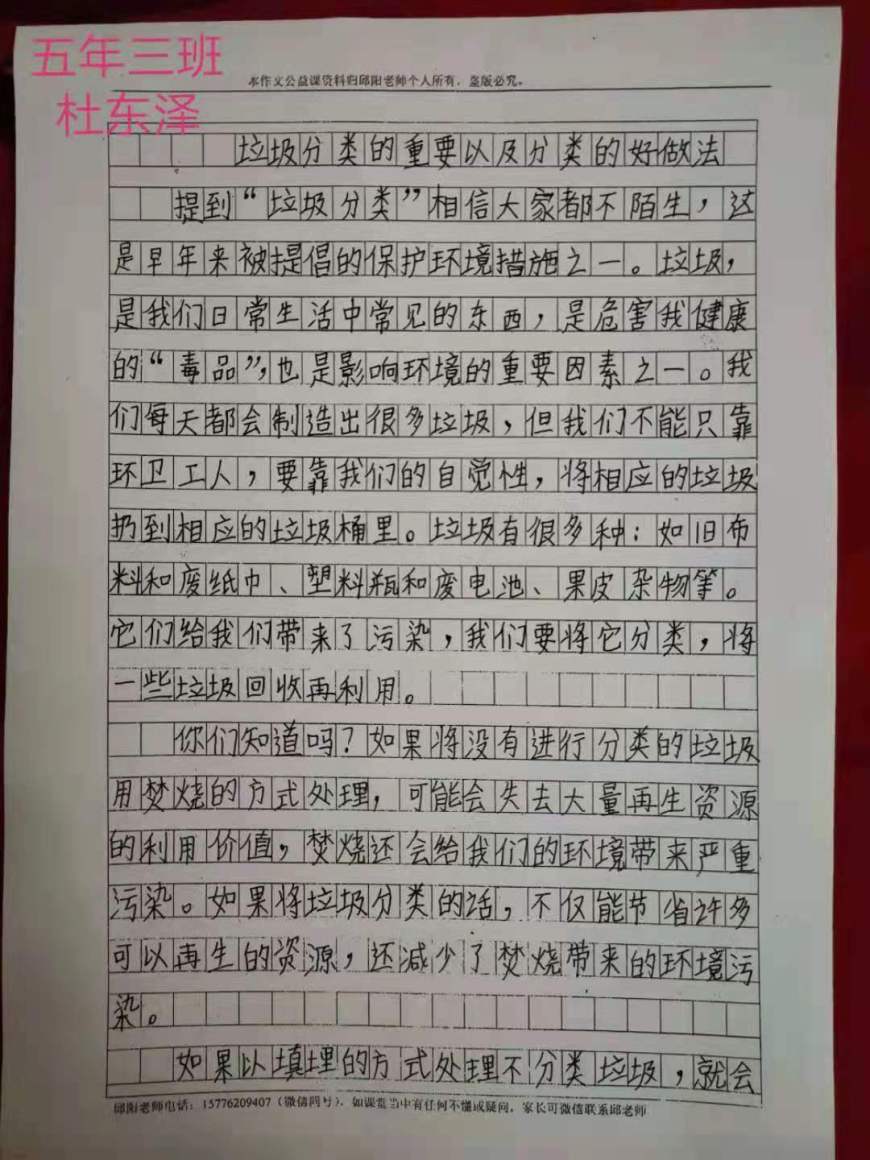 五年三班
杜东泽
本作文公益课资料归邱阳老师个人所有，盗版必究。
垃圾分类的重要以及分类的好做法
提到“垃圾分类”相信大家都不陌生，这
是早年来被提倡的保护环境措施之一。垃圾，
是我们日常生活中常见的东西，是危害我健康
的“毒品”，也是影响环境的重要因素之一。我
们每天都会制造出很多垃圾，但我们不能只靠
环卫工人，要靠我们的自觉性，将相应的垃圾
扔到相应的垃圾桶里。垃圾有很多种：如旧布
料和废纸巾、塑料瓶和废电池、果皮杂物等。
它们给我们带来了污染，我们要将它分类，将
一些垃圾回收再利用。
你们知道吗？如果将没有进行分类的垃圾
用焚烧的方式处理，可能会失去大量再生资源
的利用价值，焚烧还会给我们的环境带来严重
污染。如果将垃圾分类的话，不仅能节省许多
可以再生的资源，还减少了焚烧带来的环境污
染。
如果以填埋的方式处理不分类垃圾，就会
邱阳老师电话：15776209407（微信同号），如课堂当中有任何不懂或疑问，家长可微信联系邱老师